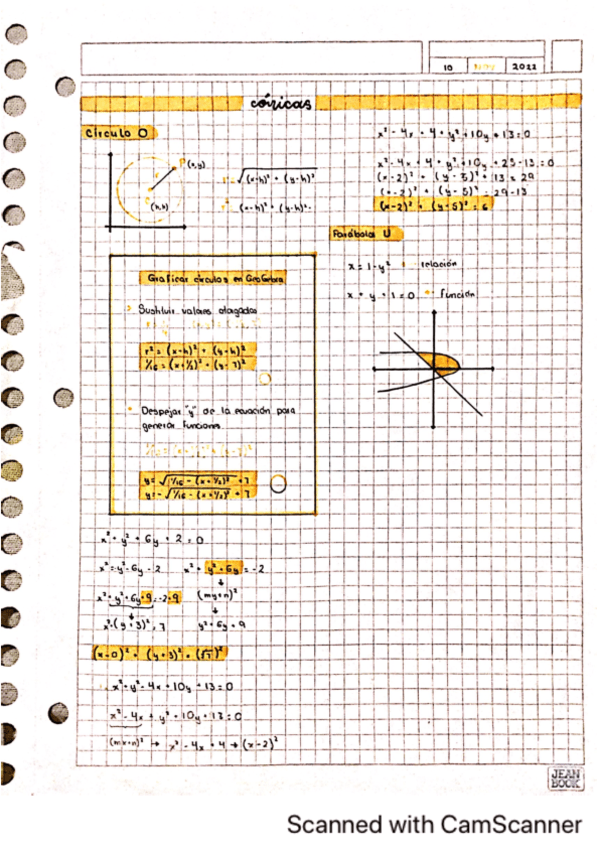 10 NOV 2022
cónicas
Círculo O
P(x,y)
r
C
(h,k)
r = √(x-h)² + (y-k)²
r² = (x-h)² + (y-k)²
Graficar círculos en GeoGebra
Sustituir valores otorgados
r² = (x-h)² + (y-k)²
1/16 = (x+1/2)² + (y-7)²
Despejar "y" de la ecuación para
generar funciones
y = √1/16 - (x+1/2)² + 7
y = -√1/16 - (x+1/2)² + 7
x² + y² + 6y + 2 = 0
x² + y² + 6y = -2
x² + y² + 6y + 9 = -2+9
(my+n)²
x² + (y+3)² = 7
y² + 6y + 9
(x-0)² + (y+3)² = (√7)²
x² + y² - 4x + 10y + 13 = 0
x² - 4x + y² + 10y + 13 = 0
(mx+n)² → x² - 4x + 4 → (x-2)²
x² - 4x + 4 + y² + 10y + 13 = 0
(x-2)² + (y-5)² + 13 = 29
(x-2)² + (y-5)² = 29-13
(x-2)² + (y-5)² = 6
Parábola U
x = 1-y² relación
x + y + 1 = 0 función
JEAN
BOOK
Scanned with CamScanner